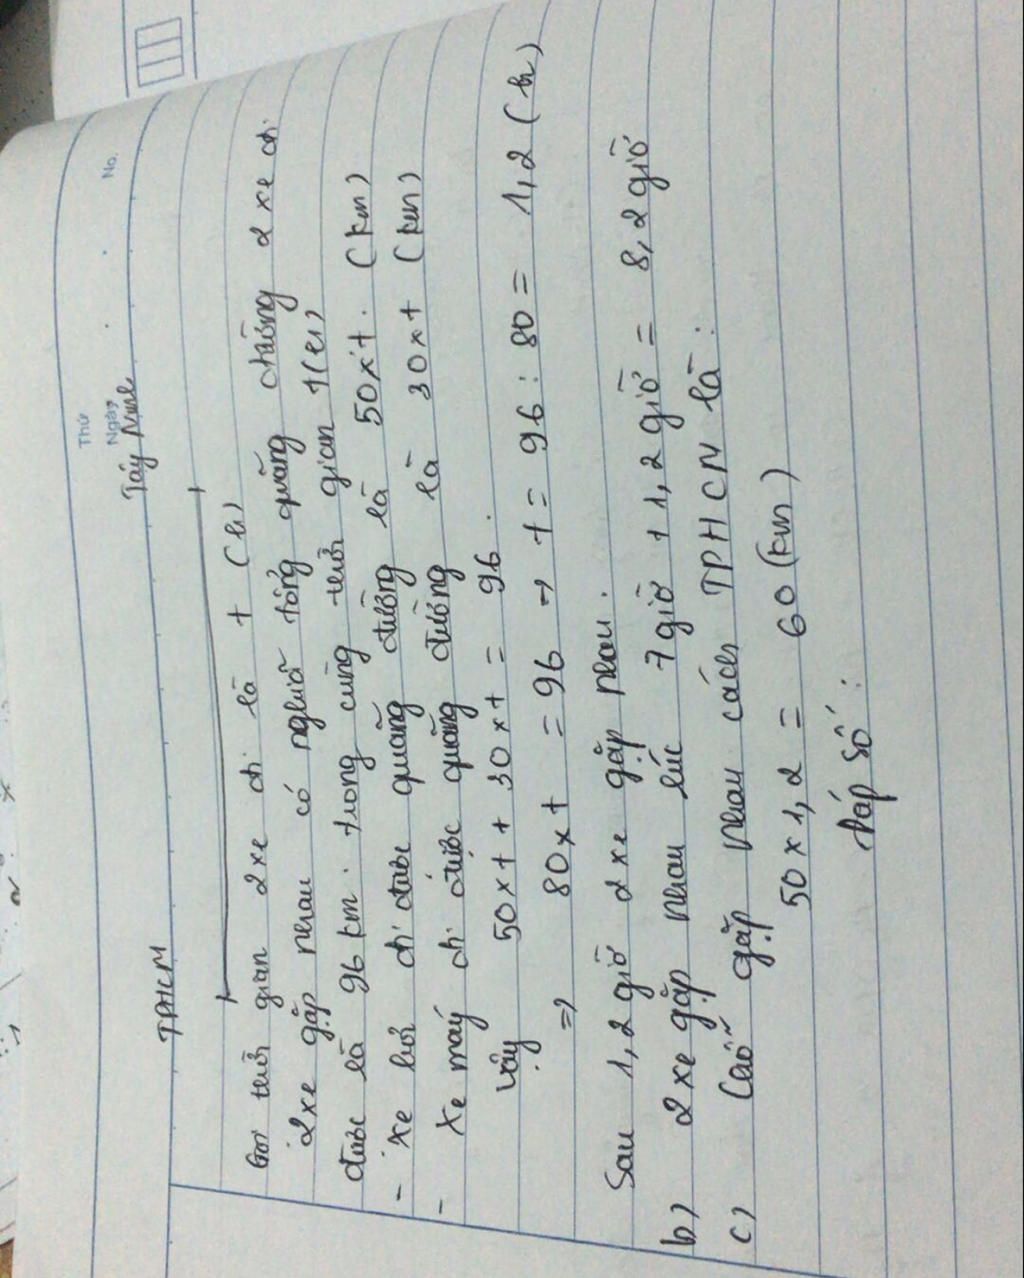 Thứ
Ngày
No.
TPHCM Tây Ninh
Gọi thời gian 2 xe đi là t (h)
2 xe gặp nhau có nghĩa tổng quãng đường 2 xe đi
được là 96 km. trong cùng thời gian t(h)
- Xe hơi đi được quãng đường là 50xt. (km)
- Xe máy đi được quãng đường là 30xt (km)
Vậy 50xt + 30xt = 96.
=> 80xt = 96 => t = 96 : 80 = 1,2 (h)
Sau 1,2 giờ 2 xe gặp nhau.
b) 2 xe gặp nhau lúc 7 giờ + 1,2 giờ = 8,2 giờ
c) Chỗ gặp nhau cách TPHCM là :
50 x 1,2 = 60 (km)
Đáp số :